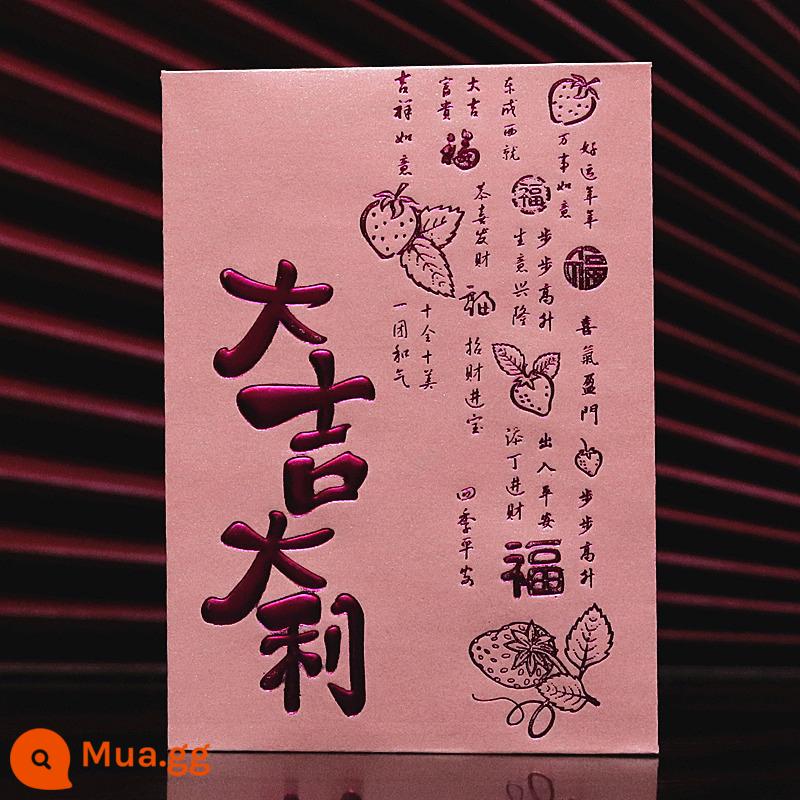 大吉大利
好运年年
喜氣盈門
步步高升
万事如意
步步高升
出入平安
东成西就
福
生意兴隆
添丁进财
福
大吉
恭喜发财
招财进宝
四季平安
富貴
福
十全十美
吉祥如意
一团和气
福
福
Mua.gg